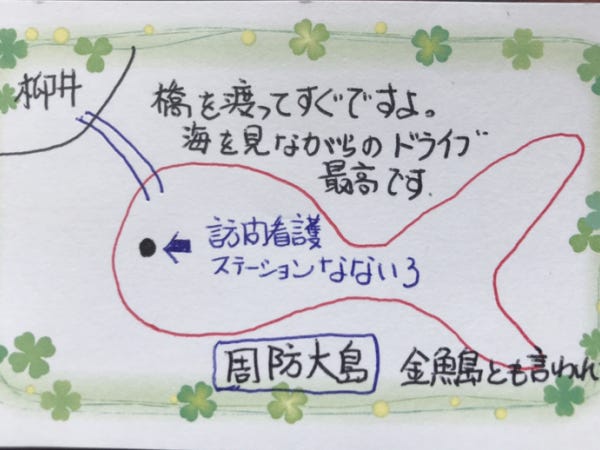 柳井
橋を渡ってすぐですよ。
海を見ながらのドライブ
最高です.
訪問看護
ステーションなないろ
周防大島
金魚島とも言われ